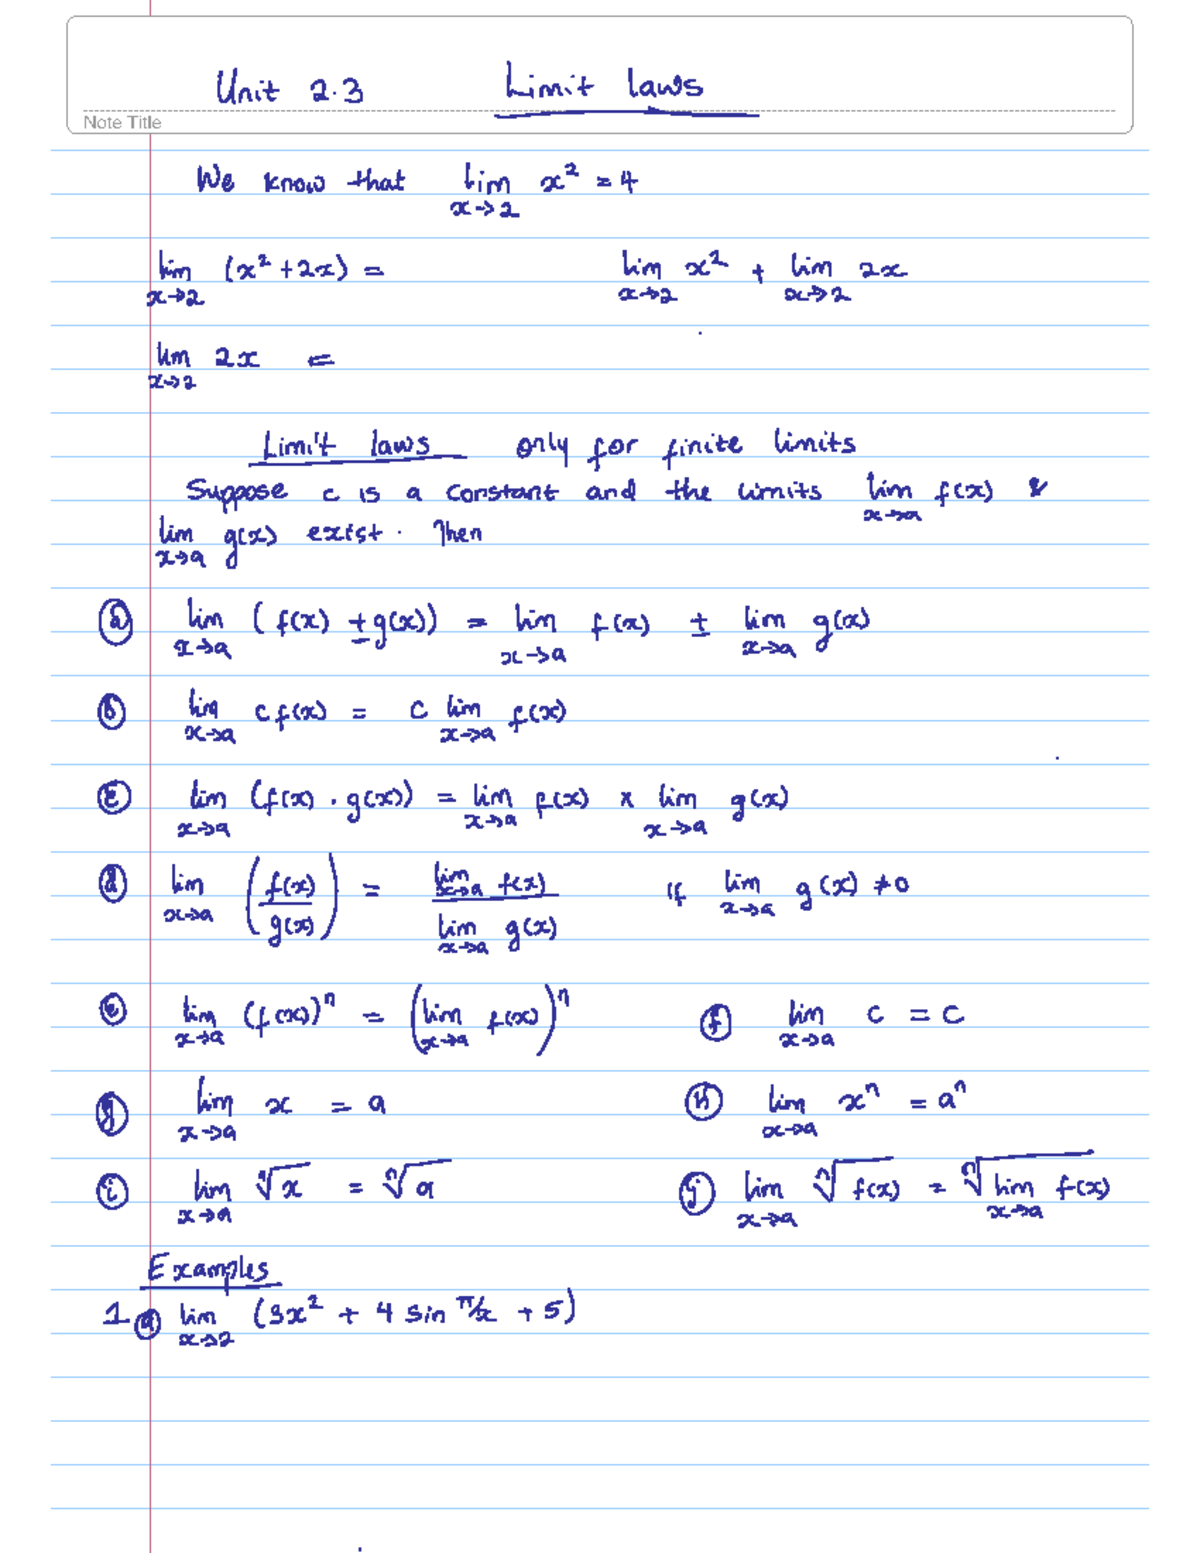 Unit 2.3 Limit laws
Note Title
We know that lim x→2 x² = 4
lim x→2 (x² + 2x) = lim x→2 x² + lim x→2 2x
lim x→2 2x =
Limit laws only for finite limits
Suppose c is a constant and the limits lim x→a f(x) &
lim x→a g(x) exist. Then
ⓐ lim x→a (f(x) ± g(x)) = lim x→a f(x) ± lim x→a g(x)
ⓑ lim x→a c f(x) = c lim x→a f(x)
ⓒ lim x→a (f(x) · g(x)) = lim x→a f(x) × lim x→a g(x)
ⓓ lim x→a (f(x)/g(x)) = lim x→a f(x) / lim x→a g(x) if lim x→a g(x) ≠ 0
ⓔ lim x→a (f(x))ⁿ = (lim x→a f(x))ⁿ ⓕ lim x→a c = c
ⓖ lim x→a x = a ⓗ lim x→a xⁿ = aⁿ
ⓘ lim x→a ⁿ√x = ⁿ√a ⓙ lim x→a ⁿ√f(x) = ⁿ√lim x→a f(x)
Examples
1. ⓐ lim x→2 (3x² + 4 sin π/x + 5)